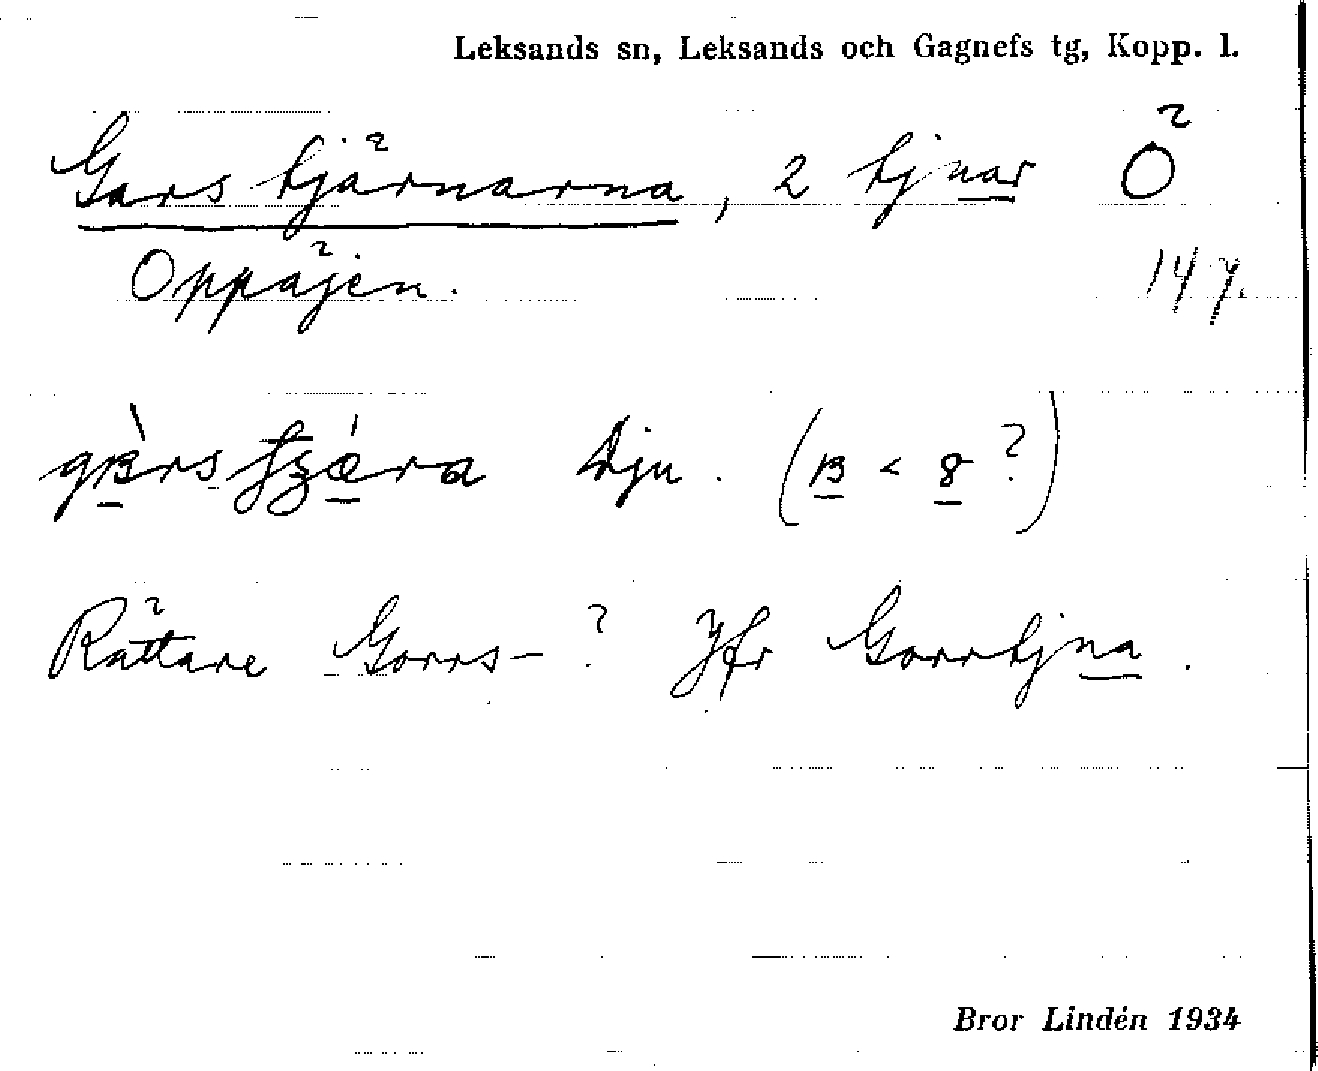 Leksands sn, Leksands och Gagnefs tg, Kopp. l.
Gars tjärnarna, 2 tjnar Ö
Oppåjen. 147.
Dju. (B < 8?)
Rättare Gorrs-? Jfr Gorrtjna.
Bror Lindén 1934